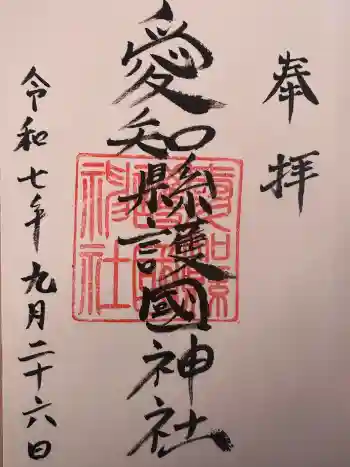 奉拝
愛知縣護國神社
令和七年九月二十六日
愛知縣護國神社